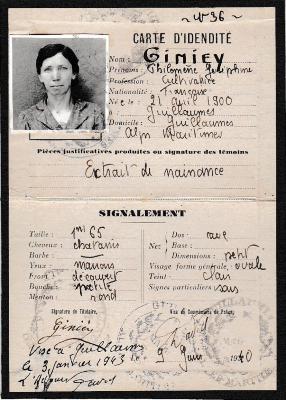 N° 36
CARTE D'IDENTITÉ
Nom : Giniey
Prénoms : Philomène Joséphine
Profession : Cultivatrice
Nationalité : Française
Né e le : 21 Avril 1900
à Guillaumes
Domicile : Guillaumes
Alpes Maritimes
Pièces justificatives produites ou signature des témoins
Extrait de naissance
SIGNALEMENT
Taille : 1m 65
Cheveux : chatains
Barbe :
Yeux : marrons
Front : découvert
Bouche : petite
Menton : rond
Nez : Dos :
Base :
Dimensions : petit
Visage forme générale : ovale
Teint : clair
Signes particuliers : sans
Signature du Titulaire,
Giniey
Visa du Commissaire de Police,
9 Juin 1940
Visé à Guillaumes
le 3 janvier 1943